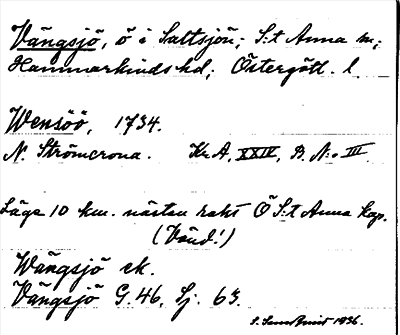 Vängsjö, ö i Saltsjön; S:t Anna sn;
Hammarkinds hd; Östergötl. l.
Wensöö, 1734.
N. Strömcrona. Kr. A, XXIV, B. N:o III
Läge 10 km. nästan rakt Ö S:t Anna kap.
(Vänd!)
Wängsjö ek.
Vängsjö G. 46, Sj. 63.
1936.